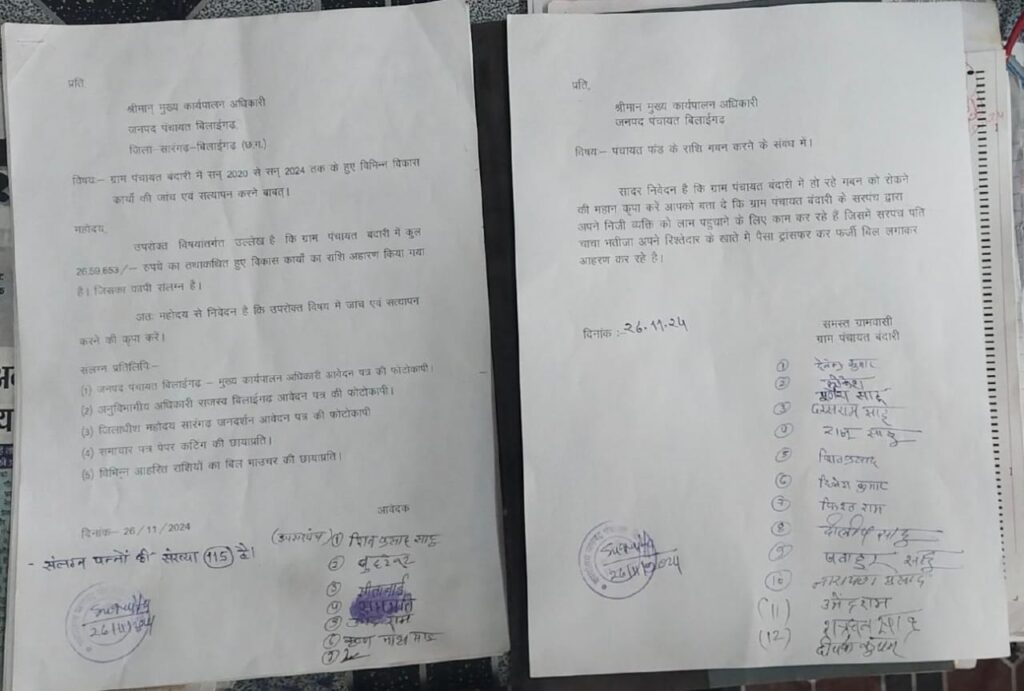 प्रति
श्रीमान् मुख्य कार्यपालन अधिकारी
जनपद पंचायत बिलाईगढ़
जिला–सारंगढ़–बिलाईगढ़ (छ.ग.)
विषय:– ग्राम पंचायत बंदारी में सन् 2020 से सन् 2024 तक के हुए विभिन्न विकास
कार्यों की जांच एवं सत्यापन करने बाबत्।
महोदय,
उपरोक्त विषयांतर्गत उल्लेख है कि ग्राम पंचायत बंदारी में कुल
26,59,653/– रुपये का तथाकथित हुए विकास कार्यों का राशि अहारण किया गया
है। जिसका कापी संलग्न है।
अतः महोदय से निवेदन है कि उपरोक्त विषय में जांच एवं सत्यापन
करने की कृपा करें।
संलग्न प्रतिलिपि:–
(1) जनपद पंचायत बिलाईगढ़ – मुख्य कार्यपालन अधिकारी आवेदन पत्र की फोटोकापी।
(2) अनुविभागीय अधिकारी राजस्व बिलाईगढ़ आवेदन पत्र की फोटोकापी।
(3) जिलाधीश महोदय सारंगढ़ जनदर्शन आवेदन पत्र की फोटोकापी
(4) समाचार पत्र पेपर कटिंग की छायाप्रति।
(5) विभिन्न आहरित राशियों का बिल भाउचर की छायाप्रति।
आवेदक
दिनांक– 26/11/2024
- संलग्न पन्नों की संख्या (115) है।
(उपसरपंच) 1 शिव प्रसाद साहू
2
3
4
5 राम
6 कृष्ण
7
26/11/2024
प्रति,
श्रीमान् मुख्य कार्यपालन अधिकारी
जनपद पंचायत बिलाईगढ़
विषय:– पंचायत फंड के राशि गबन करने के संबध में।
सादर निवेदन है कि ग्राम पंचायत बंदारी में हो रहे गबन को रोकने
की महान कृपा करें आपको बता दे कि ग्राम पंचायत बंदारी के सरपंच द्वारा
अपने निजी व्यक्ति को लाभ पहुचाने के लिए काम कर रहे हैं जिसमें सरपंच पति
चाचा भतीजा अपने रिश्तेदार के खाते में पैसा ट्रांसफर कर फर्जी बिल लगाकर
आहरण कर रहे है।
दिनांक :– 26.11.24
समस्त ग्रामवासी
ग्राम पंचायत बंदारी
1 कुमार
2 लोकेश
साहू
3 दसराम साहू
4 राजू साहू
5 शिवप्रसाद
6 दिनेश कुमार
7 फिरत राम
8 दीलीप साहू
9 साहू
10 नारायण प्रसाद
(11) उमेंदराम
(12) साहू
दीपक
26/11/2024